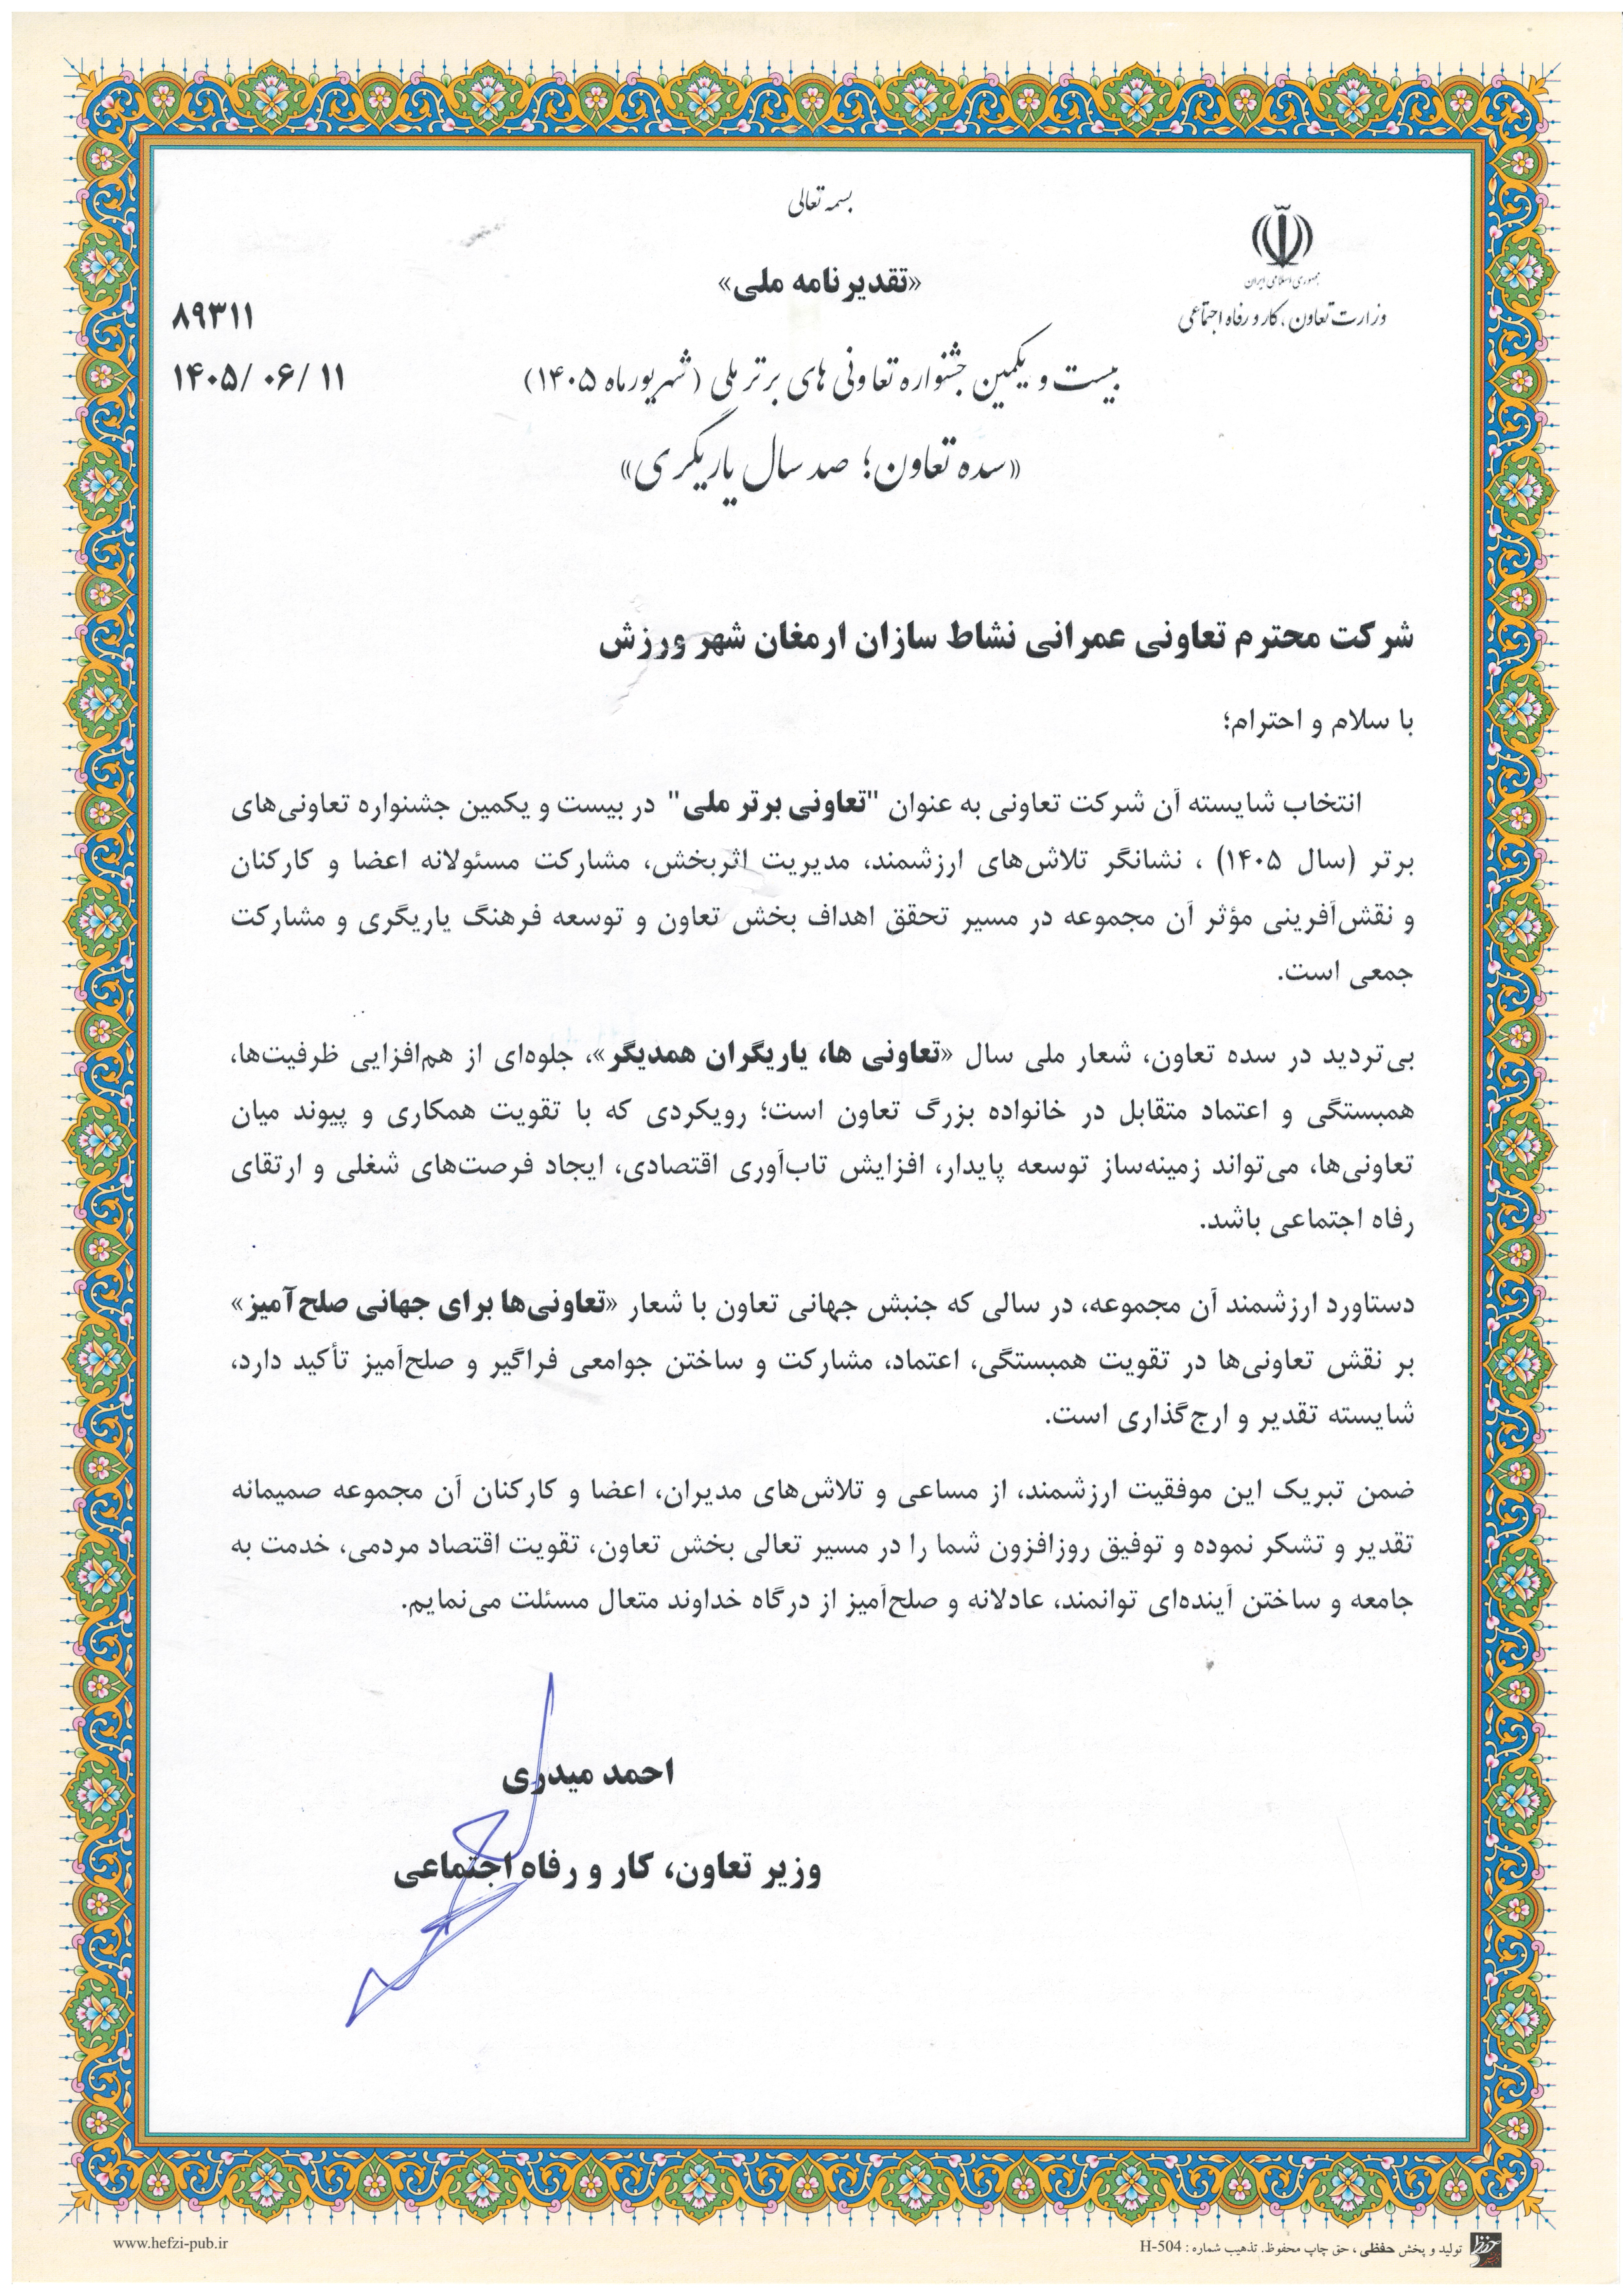 بسمه تعالی
جمهوری اسلامی ایران
وزارت تعاون، کار و رفاه اجتماعی
«تقدیرنامه ملی»
۸۹۳۱۱
۱۴۰۵/ ۰۶/ ۱۱
بیست و یکمین جشنواره تعاونی های برتر ملی (شهریورماه ۱۴۰۵)
«سده تعاون؛ صد سال یاریگری»
شرکت محترم تعاونی عمرانی نشاط سازان ارمغان شهر ورزش
با سلام و احترام؛
انتخاب شایسته آن شرکت تعاونی به عنوان "تعاونی برتر ملی" در بیست و یکمین جشنواره تعاونی‌های
برتر (سال ۱۴۰۵) ، نشانگر تلاش‌های ارزشمند، مدیریت اثربخش، مشارکت مسئولانه اعضا و کارکنان
و نقش‌آفرینی مؤثر آن مجموعه در مسیر تحقق اهداف بخش تعاون و توسعه فرهنگ یاریگری و مشارکت
جمعی است.
بی‌تردید در سده تعاون، شعار ملی سال «تعاونی ها، یاریگران همدیگر»، جلوه‌ای از هم‌افزایی ظرفیت‌ها،
همبستگی و اعتماد متقابل در خانواده بزرگ تعاون است؛ رویکردی که با تقویت همکاری و پیوند میان
تعاونی‌ها، می‌تواند زمینه‌ساز توسعه پایدار، افزایش تاب‌آوری اقتصادی، ایجاد فرصت‌های شغلی و ارتقای
رفاه اجتماعی باشد.
دستاورد ارزشمند آن مجموعه، در سالی که جنبش جهانی تعاون با شعار «تعاونی‌ها برای جهانی صلح‌آمیز»
بر نقش تعاونی‌ها در تقویت همبستگی، اعتماد، مشارکت و ساختن جوامعی فراگیر و صلح‌آمیز تأکید دارد،
شایسته تقدیر و ارج‌گذاری است.
ضمن تبریک این موفقیت ارزشمند، از مساعی و تلاش‌های مدیران، اعضا و کارکنان آن مجموعه صمیمانه
تقدیر و تشکر نموده و توفیق روزافزون شما را در مسیر تعالی بخش تعاون، تقویت اقتصاد مردمی، خدمت به
جامعه و ساختن آینده‌ای توانمند، عادلانه و صلح‌آمیز از درگاه خداوند متعال مسئلت می‌نمایم.
احمد میدری
وزیر تعاون، کار و رفاه اجتماعی
تولید و پخش حفظی ، حق چاپ محفوظ. تذهیب شماره : H-504
www.hefzi-pub.ir